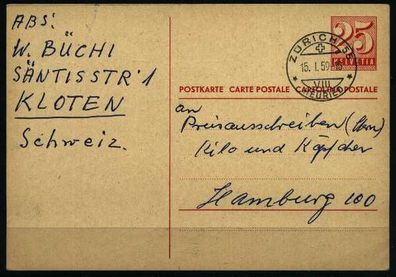 ABS:
W. BÜCHI
SÄNTISSTR'1
KLOTEN
Schweiz.
25
HELVETIA
ZÜRICH 58
15. I. 59
VIII
POSTKARTE CARTE POSTALE CARTOLINA POSTALE
an
Preisausschreiben
Kilo und
Hamburg 100